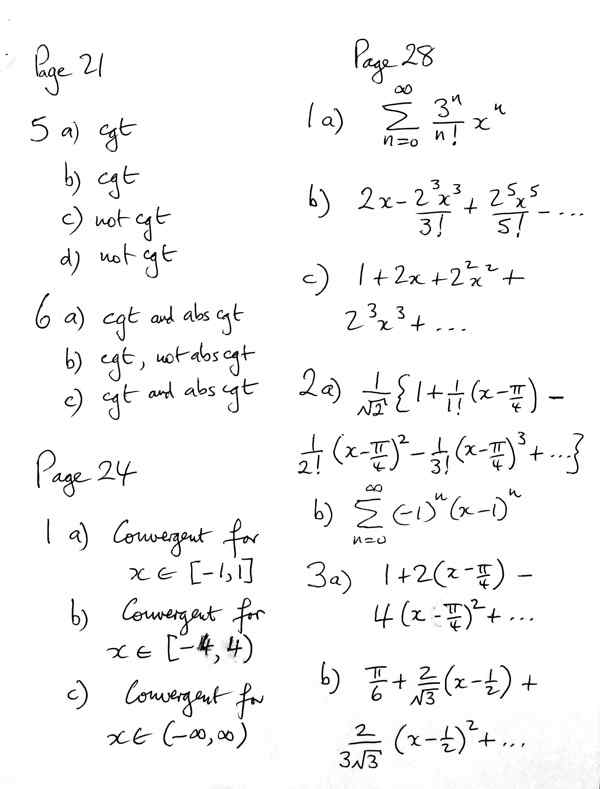 Page 21
5 a) cgt
b) cgt
c) not cgt
d) not cgt
6 a) cgt and abs cgt
b) cgt, not abs cgt
c) cgt and abs cgt
Page 24
1 a) Convergent for
x ∈ [-1,1]
b) Convergent for
x ∈ [-4, 4)
c) Convergent for
x ∈ (-∞, ∞)
Page 28
1 a) ∑_{n=0}^{∞} 3^n/n! x^n
b) 2x - 2^3x^3/3! + 2^5x^5/5! - ...
c) 1 + 2x + 2^2x^2 +
2^3x^3 + ...
2a) 1/√2 {1 + 1/1! (x - π/4) -
1/2! (x - π/4)^2 - 1/3! (x - π/4)^3 + ...}
b) ∑_{n=0}^{∞} (-1)^n (x-1)^n
3a) 1 + 2(x - π/4) -
4(x - π/4)^2 + ...
b) π/6 + 2/√3 (x - 1/2) +
2/3√3 (x - 1/2)^2 + ...